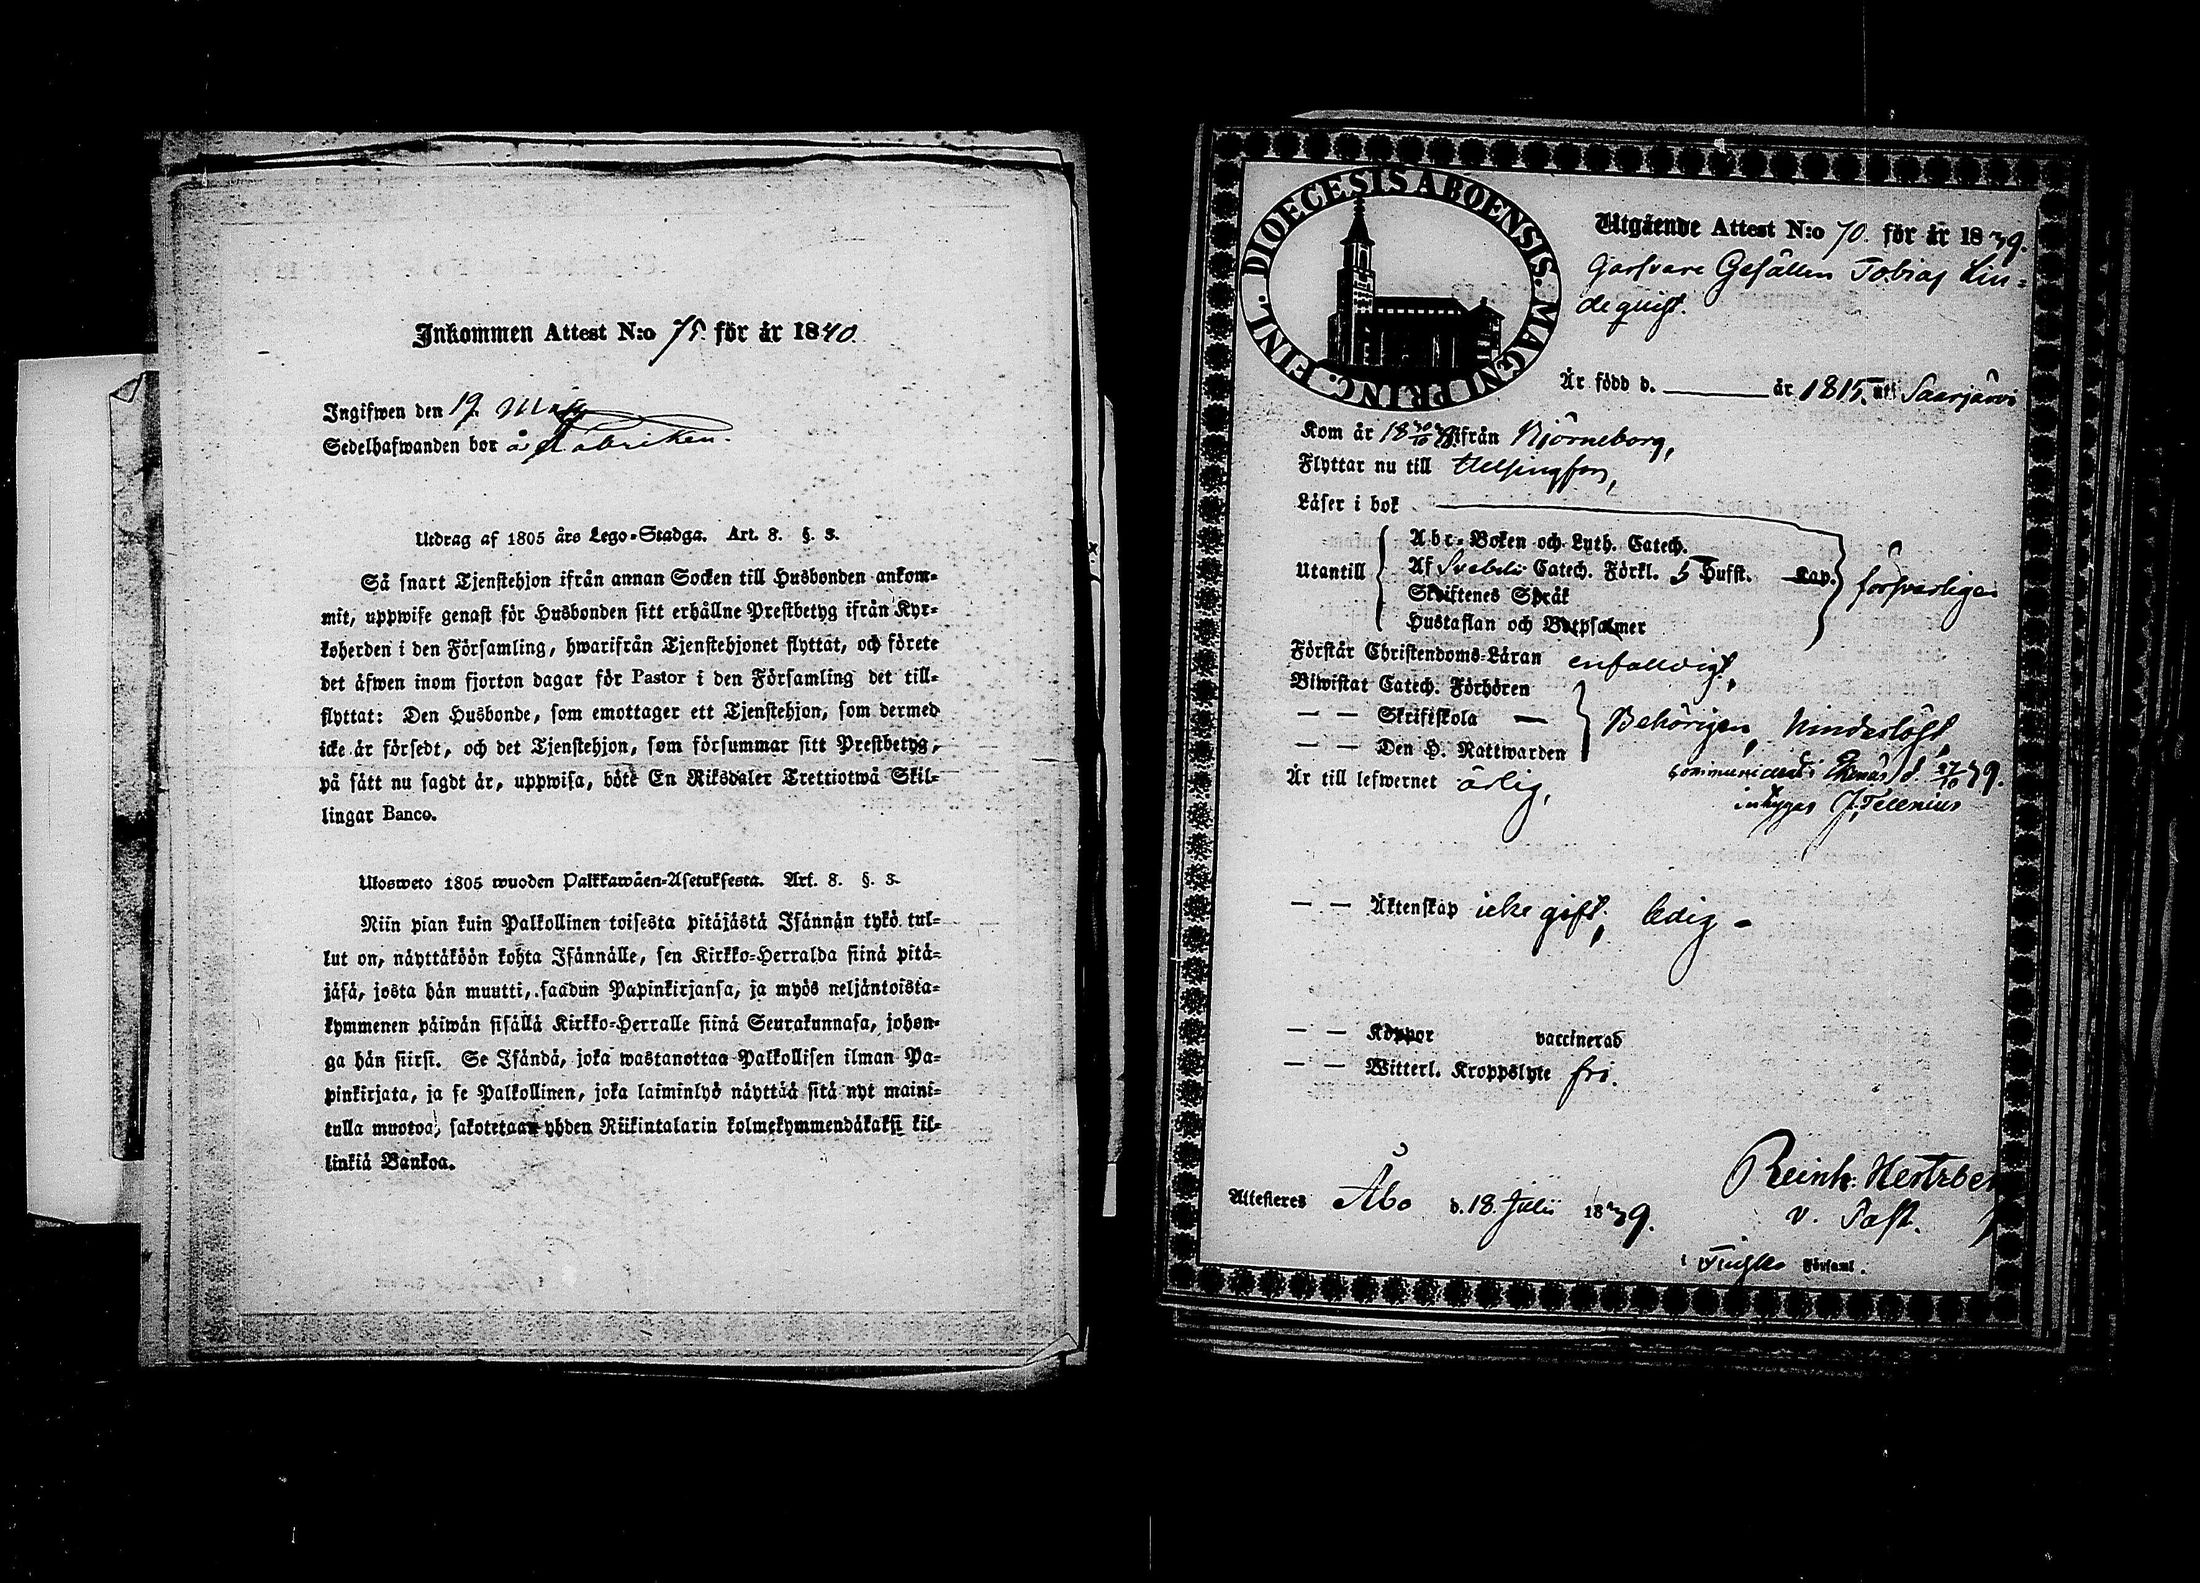 Inkommen Attest N:o 75. för år 1840.
Ingifwen den 19. Maji
Sedelhafwanden bor å Fabriken.
Utdrag af 1805 års Lego-Stadga. Art. 8. §. 3.
Så snart Tjenstehjon ifrån annan Socken till Husbonden ankom-
mit, uppwise genast för Husbonden sitt erhållne Prestbetyg ifrån Kyr-
koherden i den Församling, hwarifrån Tjenstehjonet flyttat, och förete
det äfwen inom fjorton dagar för Pastor i den Församling det till-
flyttat: Den Husbonde, som emottager ett Tjenstehjon, som dermed
icke är försedt, och det Tjenstehjon, som försummar sitt Prestbetyg,
på sätt nu sagdt är, uppwisa, böte En Riksdaler Trettiotwå Skil-
lingar Banco.
Ulosweto 1805 wuoden Palkkawäen-Asetuksesta. Art. 8. §. 3.
Niin pian kuin Palkollinen toisesta pitäjästä Isännän tykö tul-
lut on, näyttäköön kohta Isännälle, sen Kirkko-Herralda siinä pitä-
jäsä, josta hän muutti, saadun Papinkirjansa, ja myös neljäntoista-
kymmenen päiwän sisällä Kirkko-Herralle siinä Seurakunnasa, johon-
ga hän siirsi. Se Isändä, joka wastanottaa Palkollisen ilman Pa-
pinkirjata, ja se Palkollinen, joka laiminlyö näyttää sitä nyt maini-
tulla muotoa, sakotetaan yhden Riikintalarin kolmekymmendäkaksi kil-
linkiä Bankoa.
DIOECESIS ABOENSIS. MAGNI PRINC. FINL.
Utgående Attest N:o 70. för år 1839.
Garfvare Gesällen Tobias Lin-
dequist.
Är född d. år 1815. uti Saarjärvi
Kom år 18 ifrån Björneborg,
Flyttar nu till Helsingfors,
Läser i bok
Abc-Boken och Luth. Catech.
Utantill Af Svebelii Catech. Förkl. 5 Hufst. Kap. försvarligen
Skriftenes Språk
Hustaflan och Botpsalmer
Förstår Christendoms-Läran enfalldigt,
Biwistat Catech. Förhören
— — Skriftskola — Behörigen, hinderslöst,
— — Den H. Nattwarden
communicerat i Ekenäs d. 27/10 39.
Är till lefwernet ärlig,
intygas J. Telenius
— — Äktenskap icke gift, ledig -
— — Koppor vaccinerad
— — Witterl. Kroppslyte fri.
Reinh. Hertzber
Attesteres Åbo d. 18. Julii 1839.
v. Past.
i Församl.